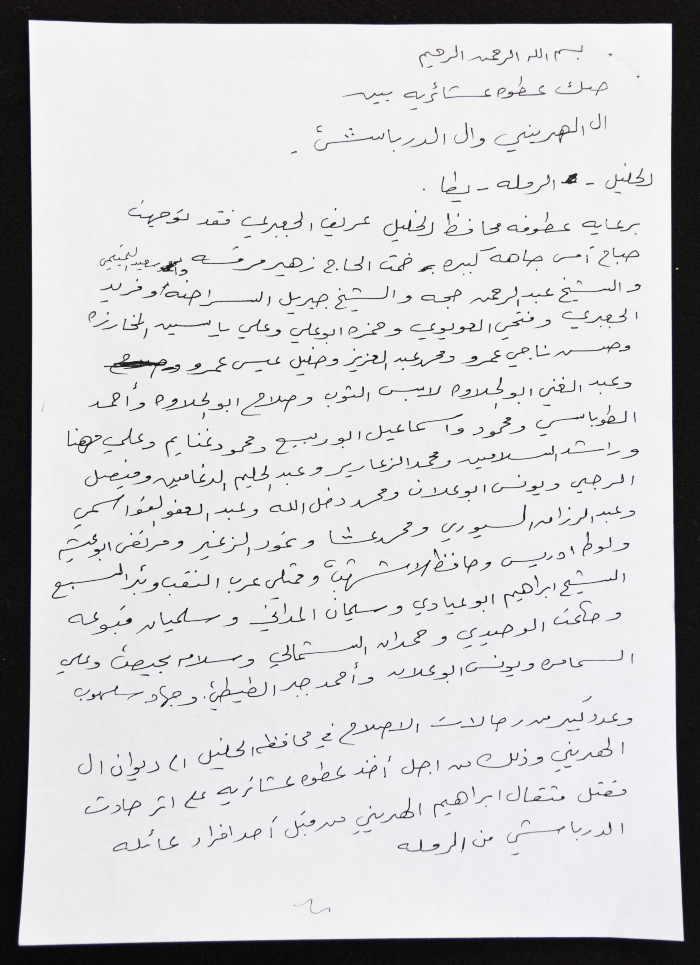 بسم الله الرحمن الرحيم
صك عطوه عشائريه بين
ال الهريني وال الدرباشي
الخليل - الرمله - يطا .
برعايه عطوفه محافظ الخليل عريف الجعبري فقد توجهت
صباح أمس جاهه كبيره ضمت الحاج زهير مرقه
والشيخ عبد الرحمن حجه والشيخ جبريل السراحنه وفريد
الجعبري وفتحي العويوي وحمزه ابوعلي وعلي ياسين المخارزه
وحسن ناجي عمرو ومحمد عبد العزيز وخليل عيسى عمرو
وعبد الغني ابو الحلاوه لابس الثوب وصلاح ابو الحلاوه وأحمد
الطوباسي ومحمود واسماعيل ابو ربيع ومحمود غنايم وعلي مهنا
وراشد السلامين ومحمد الزعارير وعبد الحليم الدغامين وفيصل
الرجبي ويونس ابوعلان ومحمد دخل الله وعبد العفو القواسمي
وعبد الرزاق السيوري ومحمد عشا ونمور الزغير ومرتضى ابو عيشه
ولوط ادريس وحافظ وممثلي عرب النقب وبئر السبع
الشيخ ابراهيم ابو عيادي وسليمان المداني وسلميان قبوعه
الوحيدي وحمدان الشمالي وسلامه بحيص وعلي
السمامره ويونس ابوعلان وأحمد جبر الطيطي وجهاد سلهوب
وعدد كبير من رجالات الاصلاح في محافظه الخليل الى ديوان ال
الهريني وذلك من اجل أخذ عطوه عشائريه على اثر حادث
مقتل مثقال ابراهيم الهريني من قبل أحد افراد عائله
الدرباشي من الرمله